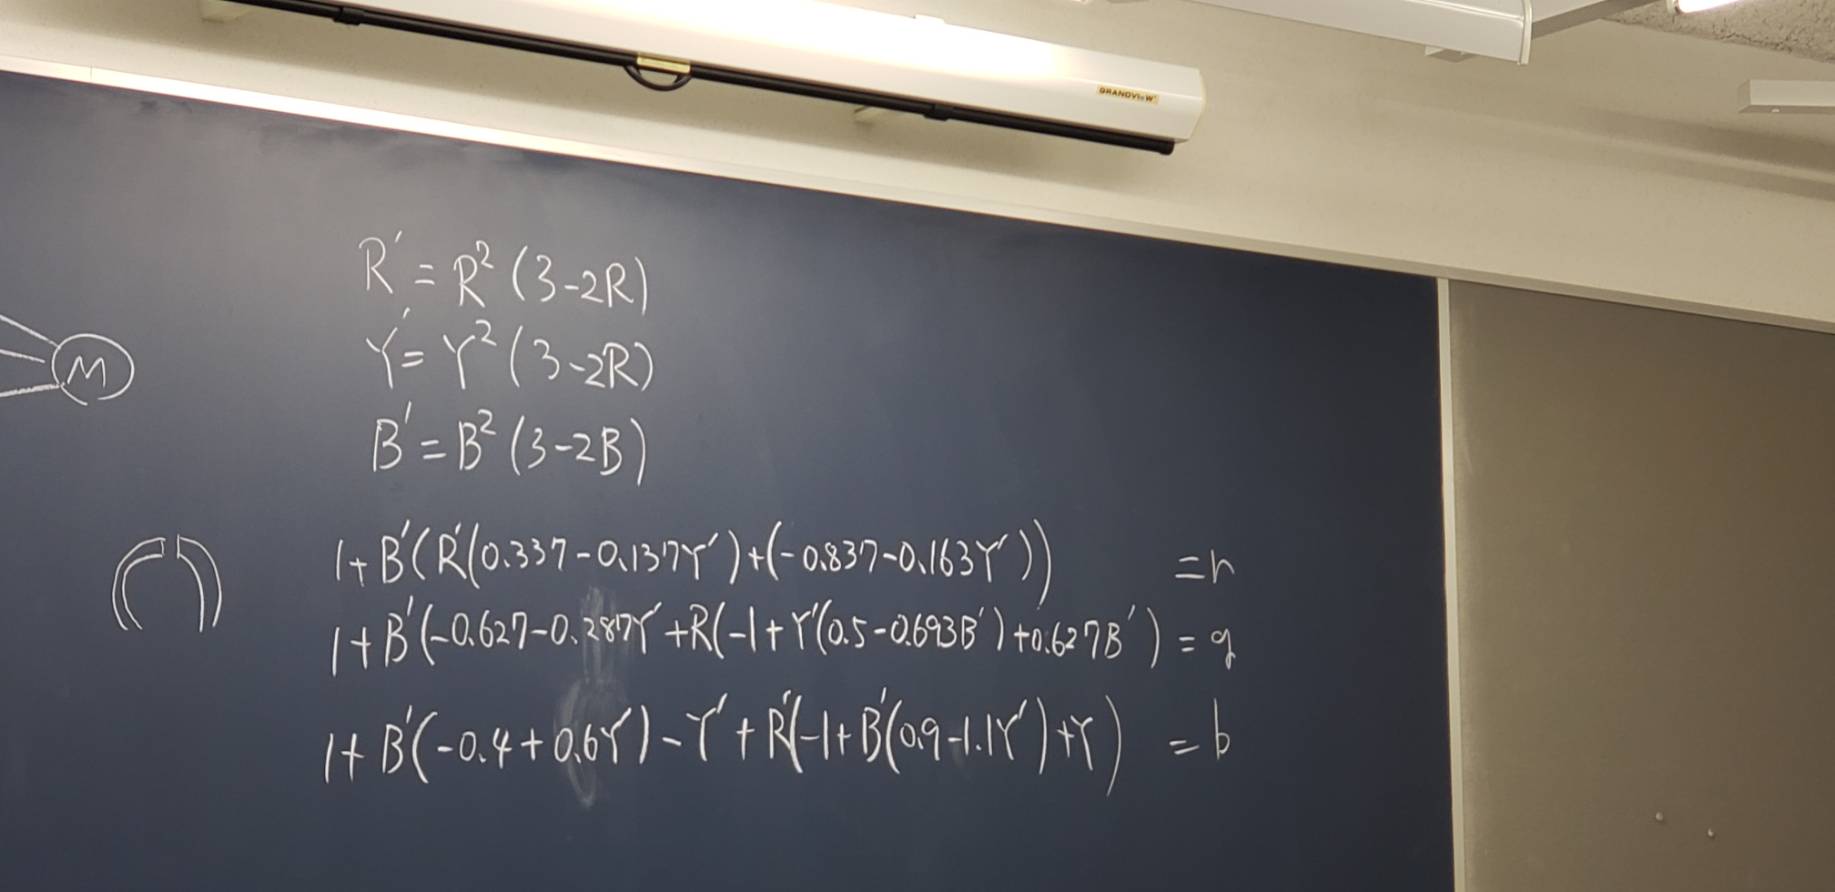 GRANDVIEW
R' = R² (3-2R)
Y' = Y² (3-2R)
M
B' = B² (3-2B)
1+B'(R'(0.337-0.137Y')+(-0.837-0.163Y')) = r
1+B'(-0.627-0.287Y'+R(-1+Y'(0.5-0.693B')+0.627B') = g
1+B'(-0.4+0.6Y')-Y'+R'(-1+B'(0.9-1.1Y')+Y) = b